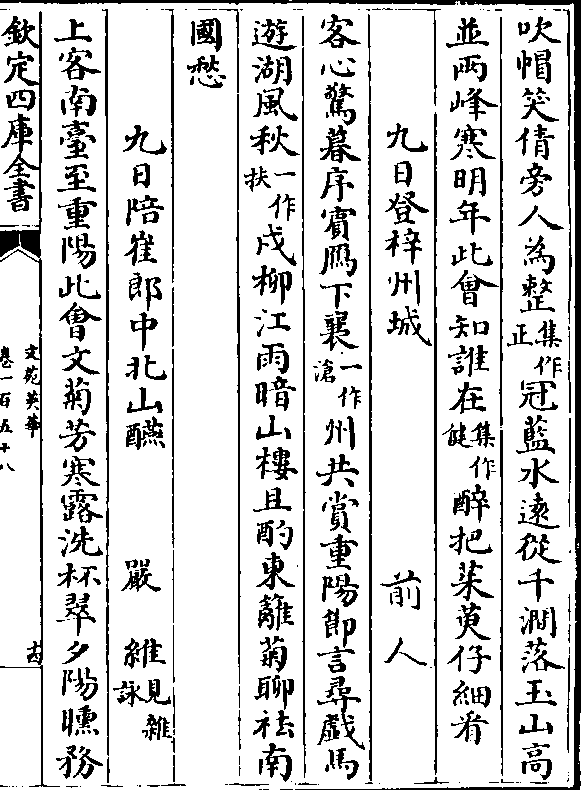 吹帽笑倩旁人為整集作正冠藍水遠從千澗落玉山高
並兩峰寒明年此會知誰在集作健醉把茱萸仔細看
九日登梓州城 前人
客心驚暮序賓鴈下襄一作滄州共賞重陽節言尋戲馬
遊湖風秋一作扶戍柳江雨暗山樓且酌東籬菊聊袪南
國愁
九日陪崔郎中北山醼 嚴維見雜詠
上客南臺至重陽此會文菊芳寒露洗杯翠夕陽曛務
欽定四庫全書
文苑英華
卷一百五十八